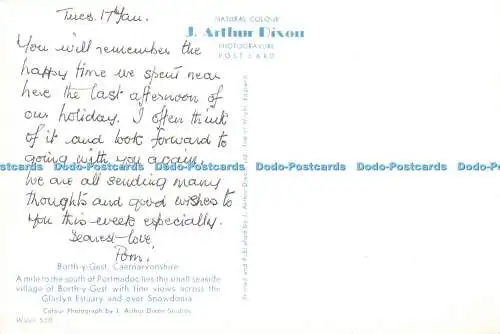 Tues. 17th Jan.
NATURAL COLOUR
J. Arthur Dixon
PHOTOGRAVURE
POST CARD
You will remember the
happy time we spent near
here the last afternoon of
our holiday. I often think
of it and look forward to
going with you again.
We are all sending many
thoughts and good wishes to
you this week especially.
Dearest love,
Pom.
Dodo-Postcards Dodo-Postcards Dodo-Postcards Dodo-Postcards Dodo-Postcards
Borth-y-Gest, Caernarvonshire
A mile to the south of Portmadoc lies the small seaside
village of Borth-y-Gest with fine views across the
Glaslyn Estuary and over Snowdonia
Colour Photograph by J. Arthur Dixon Studios.
Wales 550
Printed and Published by J. Arthur Dixon Ltd., Isle of Wight, England.